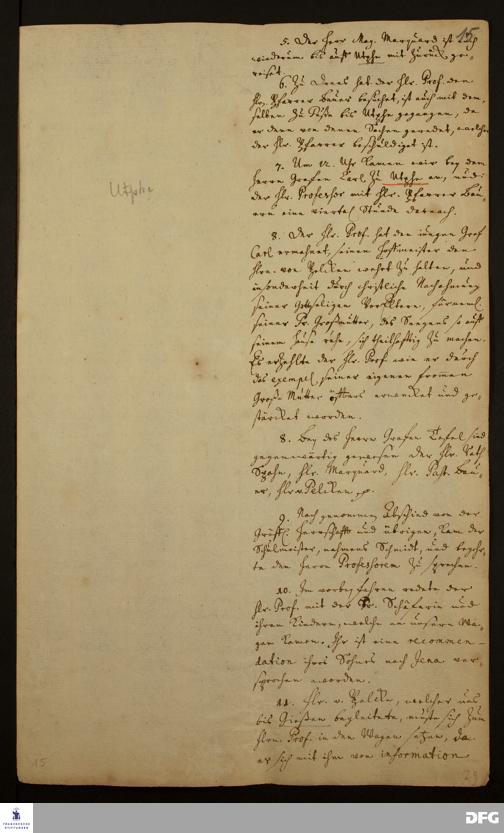 15
5. Der Herr Mag. Marquard ist auch
wiederum bis auff Utphe mit zurück ge-
reiset.
6. Zu Drees hat der Hr. Prof. den
Hrn. Pfarrer Bauer besuchet, ist auch mit dem-
selben zu Fuße bis Utphe gegangen, da
er denn von denen Sachen geredet, welcher
der Hr. Pfarrer beschuldiget ist.
7. Um 12. Uhr kamen wir bey dem
Herrn Grafen Carl zu Utphe an, und
der Hr. Professor mit Hr. Pfarrer Bau-
ern eine viertel Stunde darnach.
Utphe
8. Der Hr. Prof. hat den jungen Graf
Carl ermahnet, seinen Hoffmeister den
Hrn. von Pelcken werth zu halten, und
insonderheit durch christliche Nachahmung
seiner gottseligen Vor-Eltern, fürneml.
seiner Fr. Großmutter, des Seegens so auff
seinem Hause ruhe, sich theilhafftig zu machen.
Es erzehlte der Hr. Prof. wie er durch
das exempel seiner eigenen frommen
Groß-Mutter öffters erwecket und ge-
stärcket worden.
8. Bey des Herrn Grafen Tafel sind
gegenwärtig gewesen der Hr. Rath
Hr. Marquard, Hr. Past. Bau-
er, Hr. v. Pelcken
9. Nach genommen Abschied von der
Gräfl. Herrschafft und übrigen, kam der
Schulmeister, nahmens Schmidt, und begehr-
te den Herrn Professorem zu sprechen.
10. Im vorbey fahren redete der
Hr. Prof. mit der Fr. Schäferin und
ihren Kindern, welche an unsern Wa-
gen kamen. Ihr ist eine recommen-
dation ihres Sohnes nach Jena ver-
sprochen worden.
11. Hr. v. Pelcke, welcher uns
bis Gießen begleitete, muste sich zum
Hrn. Prof. in den Wagen setzen, da
er sich mit ihm von information
15
29
FRANCKESCHE
STIFTUNGEN
DFG